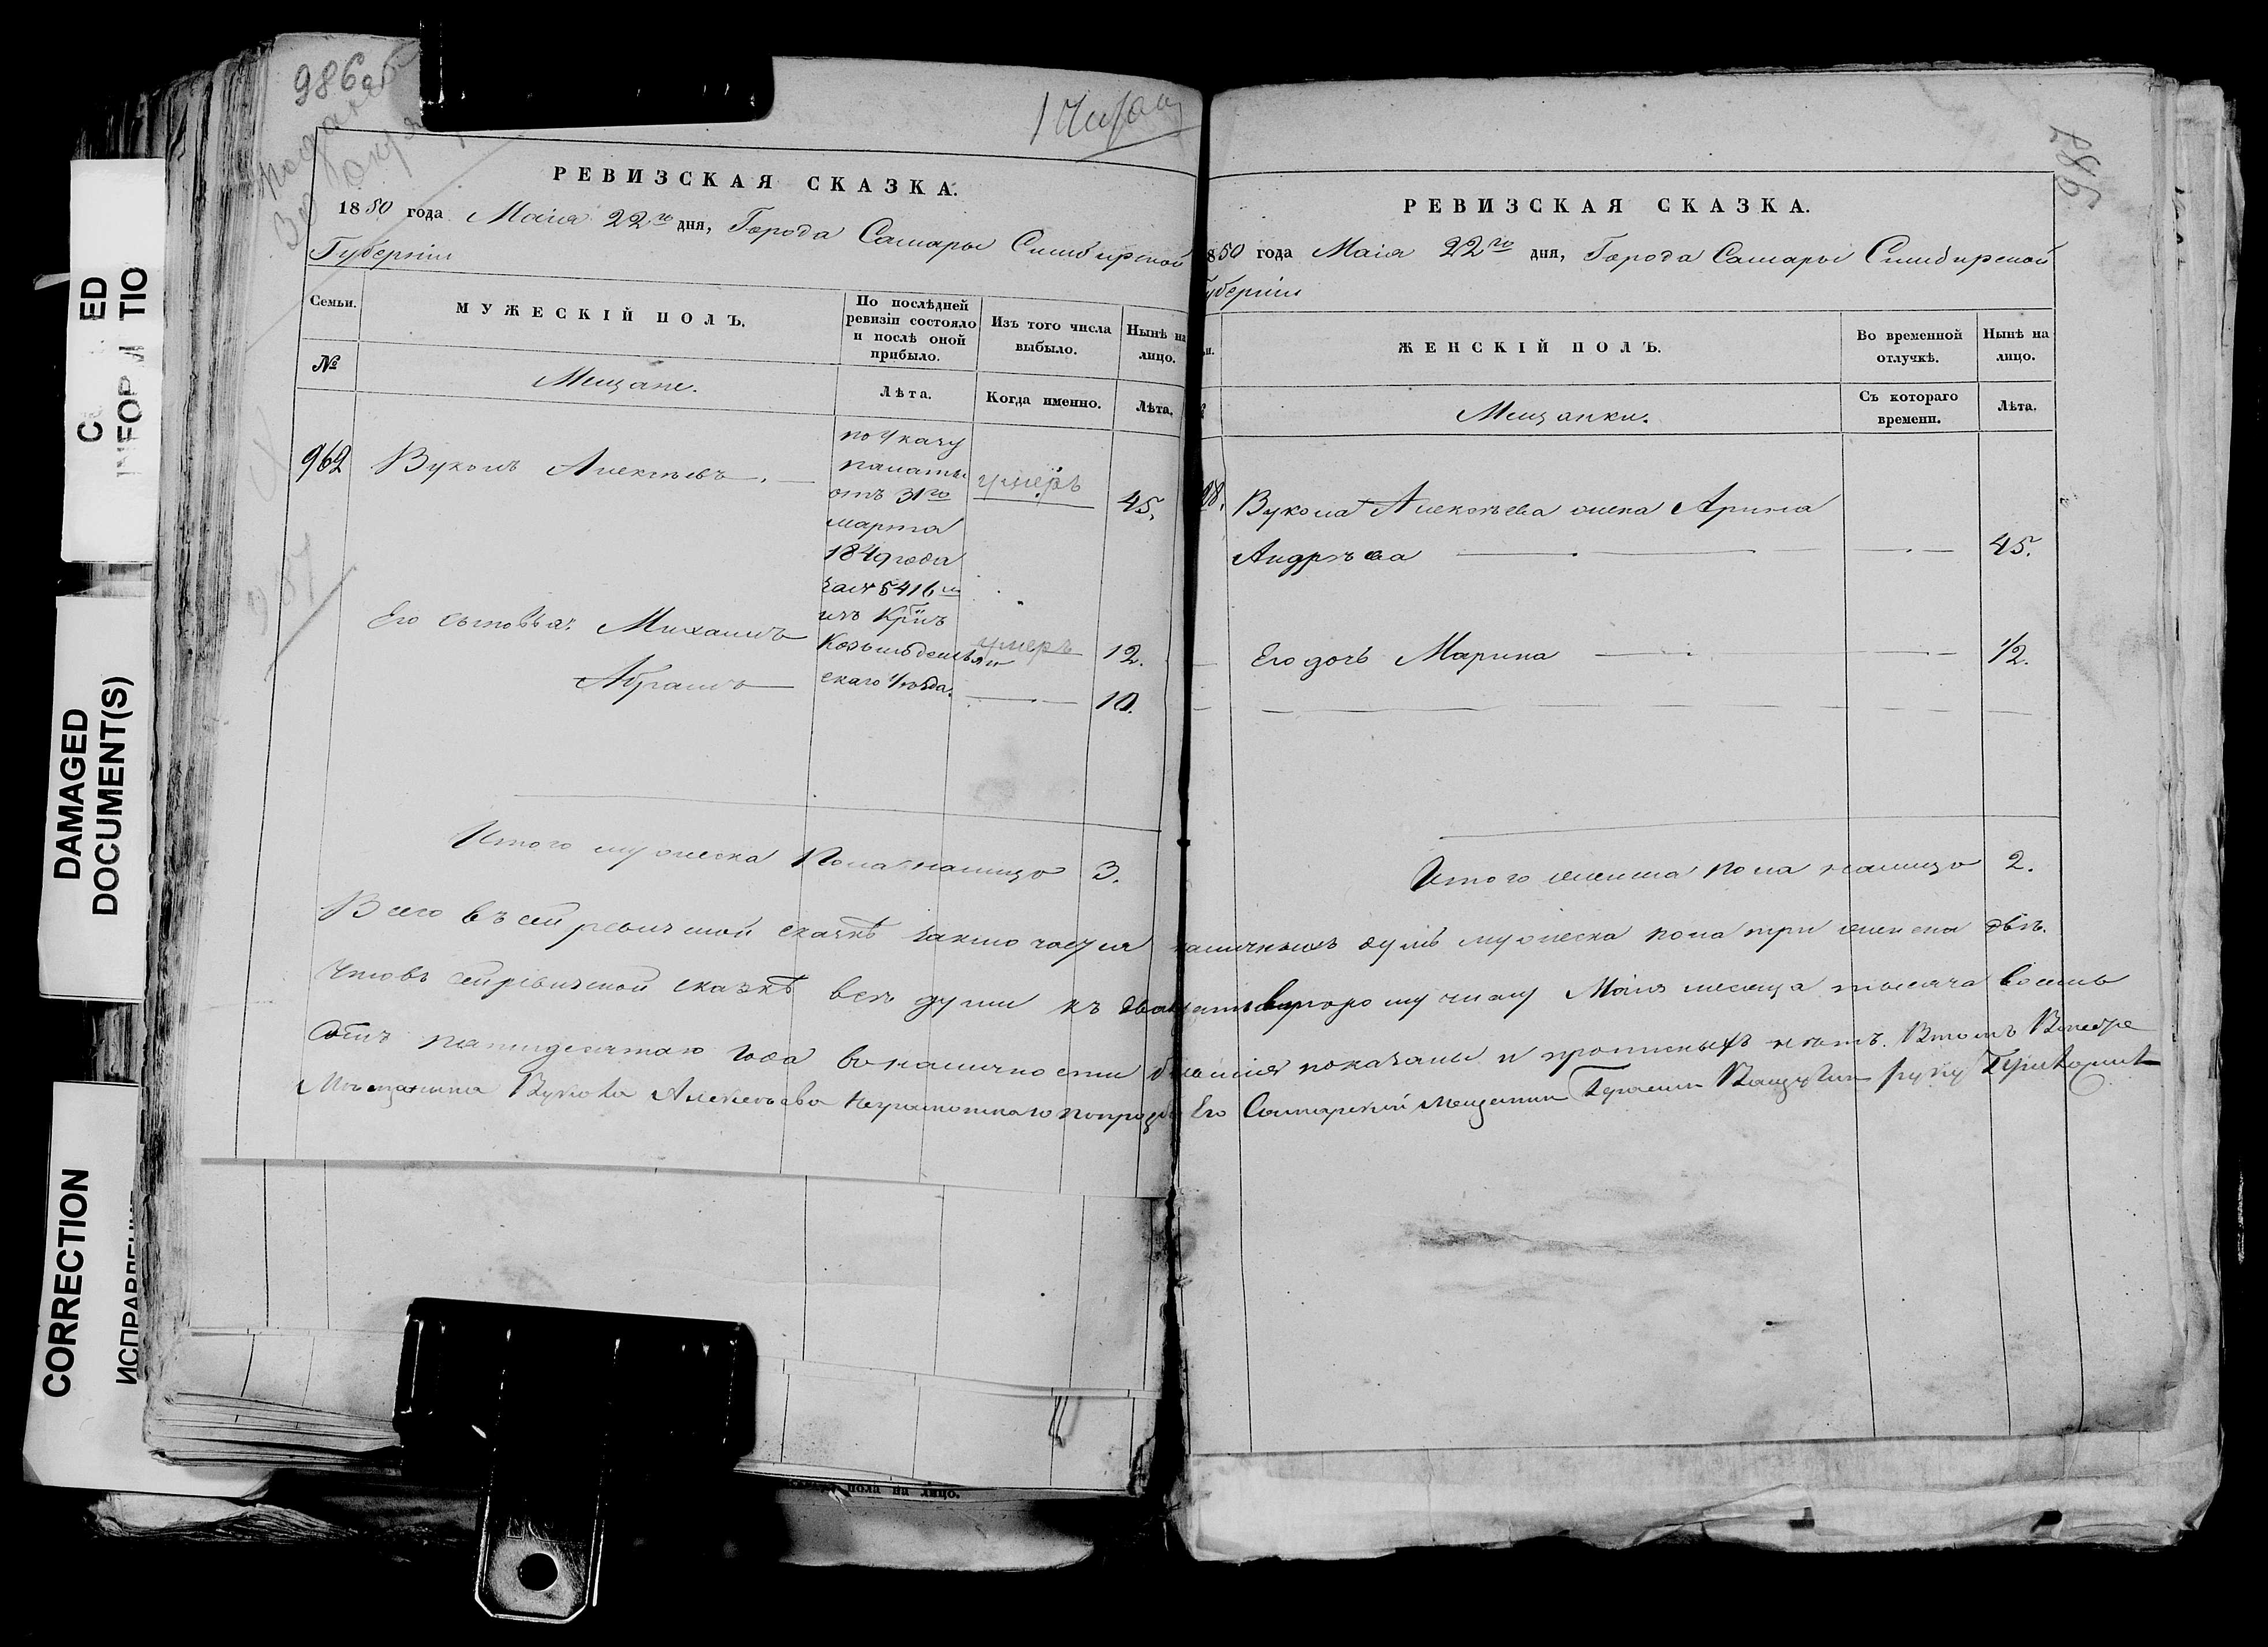 986 об
987
985
РЕВИЗСКАЯ СКАЗКА.
1850 года Маія 22го дня, Города Самары Симбирской
Губерніи
Семьи.
МУЖЕСКІЙ ПОЛЪ.
По послѣдней
ревизіи состояло
и послѣ оной
прибыло.
Изъ того числа
выбыло.
Нынѣ на
лицо.
№
Мещане.
Лѣта.
Когда именно.
Лѣта.
962
Вуколъ Алексѣевъ.
по указу
палаты
отъ 31го
марта
1849 года
за № 5416м
изъ
Козьмодемьян
скаго уѣзда.
умеръ
45.
Его сыновья: Михаилъ
умеръ
12.
Абрамъ
10.
Итого мужеска пола налицо 3.
РЕВИЗСКАЯ СКАЗКА.
850 года Маія 22го дня, Города Самары Симбирской
уберніи
ЖЕНСКІЙ ПОЛЪ.
Во временной
отлучкѣ.
Нынѣ на
лицо.
Мещанки.
Съ котораго
времени.
Лѣта.
Вукола Алексѣева жена Арина
Андрѣева
45.
Его дочь Марина
1/2.
Итого женска пола налицо 2.
Всего въ сей ревизкой сказкѣ заключается наличныхъ душъ мужеска пола три женска двѣ.
Что въ сей ревизкой сказкѣ всѣ души къ двадцать второму числу Маія месяца тысяча восемь
сотъ пятидесятаго года въ наличности бывшія показаны и прописныхъ нѣтъ. Въ томъ
Мещанина Вукола Алексѣева неграмотнаго по прозбѣ Его Самарской мещанин Герасим руку приложилъ
DAMAGED
DOCUMENT(S)
CORRECTION